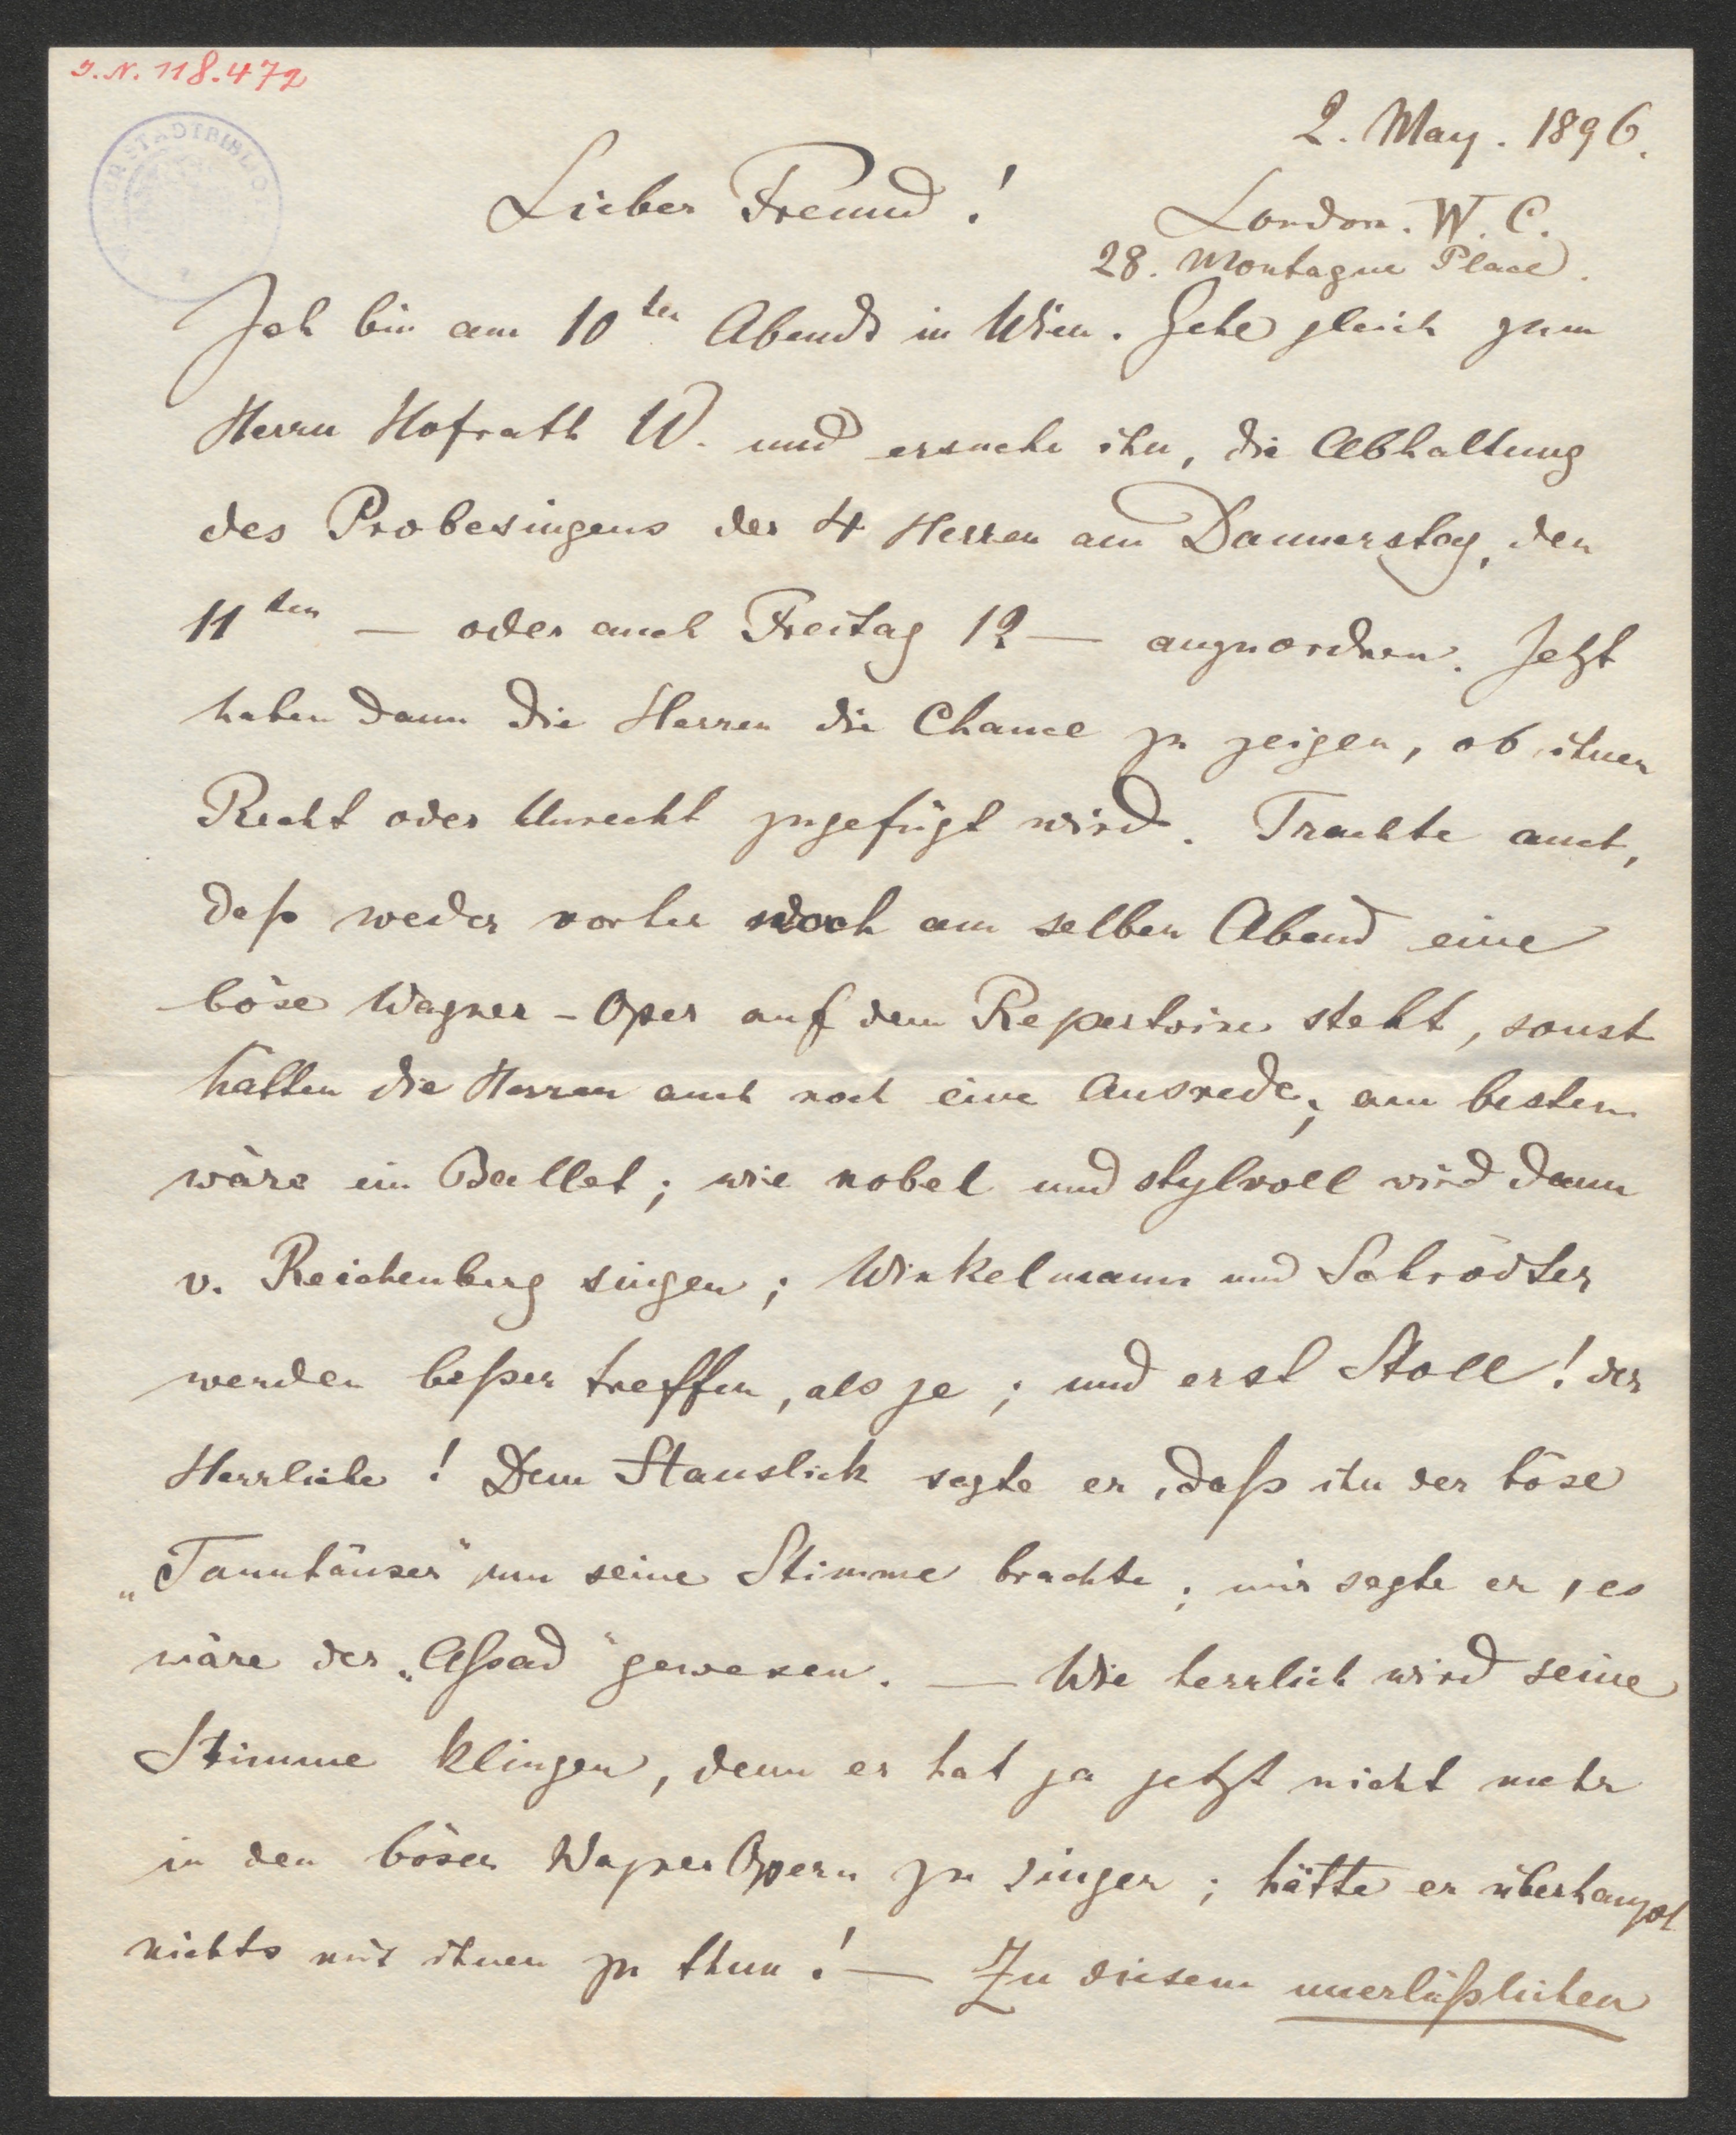 J.N. 118.472
2. May. 1896.
Lieber Freund!
London. W. C.
28. Montague Place.
Ich bin am 10ten Abends in Wien. Gehe gleich zum
Herrn Hofrath W. und ersuche ihn, die Abhaltung
des Probesingens der 4 Herren am Donnerstag, den
11ten — oder auch Freitag 12 — anzuordnen. Jetzt
haben dann die Herren die Chance zu zeigen, ob ihnen
Recht oder Unrecht zugefügt wird. Trachte auch,
daß weder vorher noch am selben Abend eine
böse Wagner-Oper auf dem Repertoire steht, sonst
hätten die Herren auch noch eine Ausrede; am besten
wäre ein Ballet; wie nobel und stylvoll wird dann
v. Reichenberg singen; Winkelmann und Schrödter
werden beßer treffen, als je; und erst Stoll! der
Herrliche! Dem Hanslick sagte er, daß ihn der böse
„Tannhäuser" um seine Stimme brachte; mir sagte er, es
wäre der „Aßad" gewesen. — Wie herrlich wird seine
Stimme klingen, denn er hat ja jetzt nicht mehr
in den bösen WagnerOpern zu singen; hätte er überhaupt
nichts mit ihnen zu thun! — Zu diesem unerläßlichen